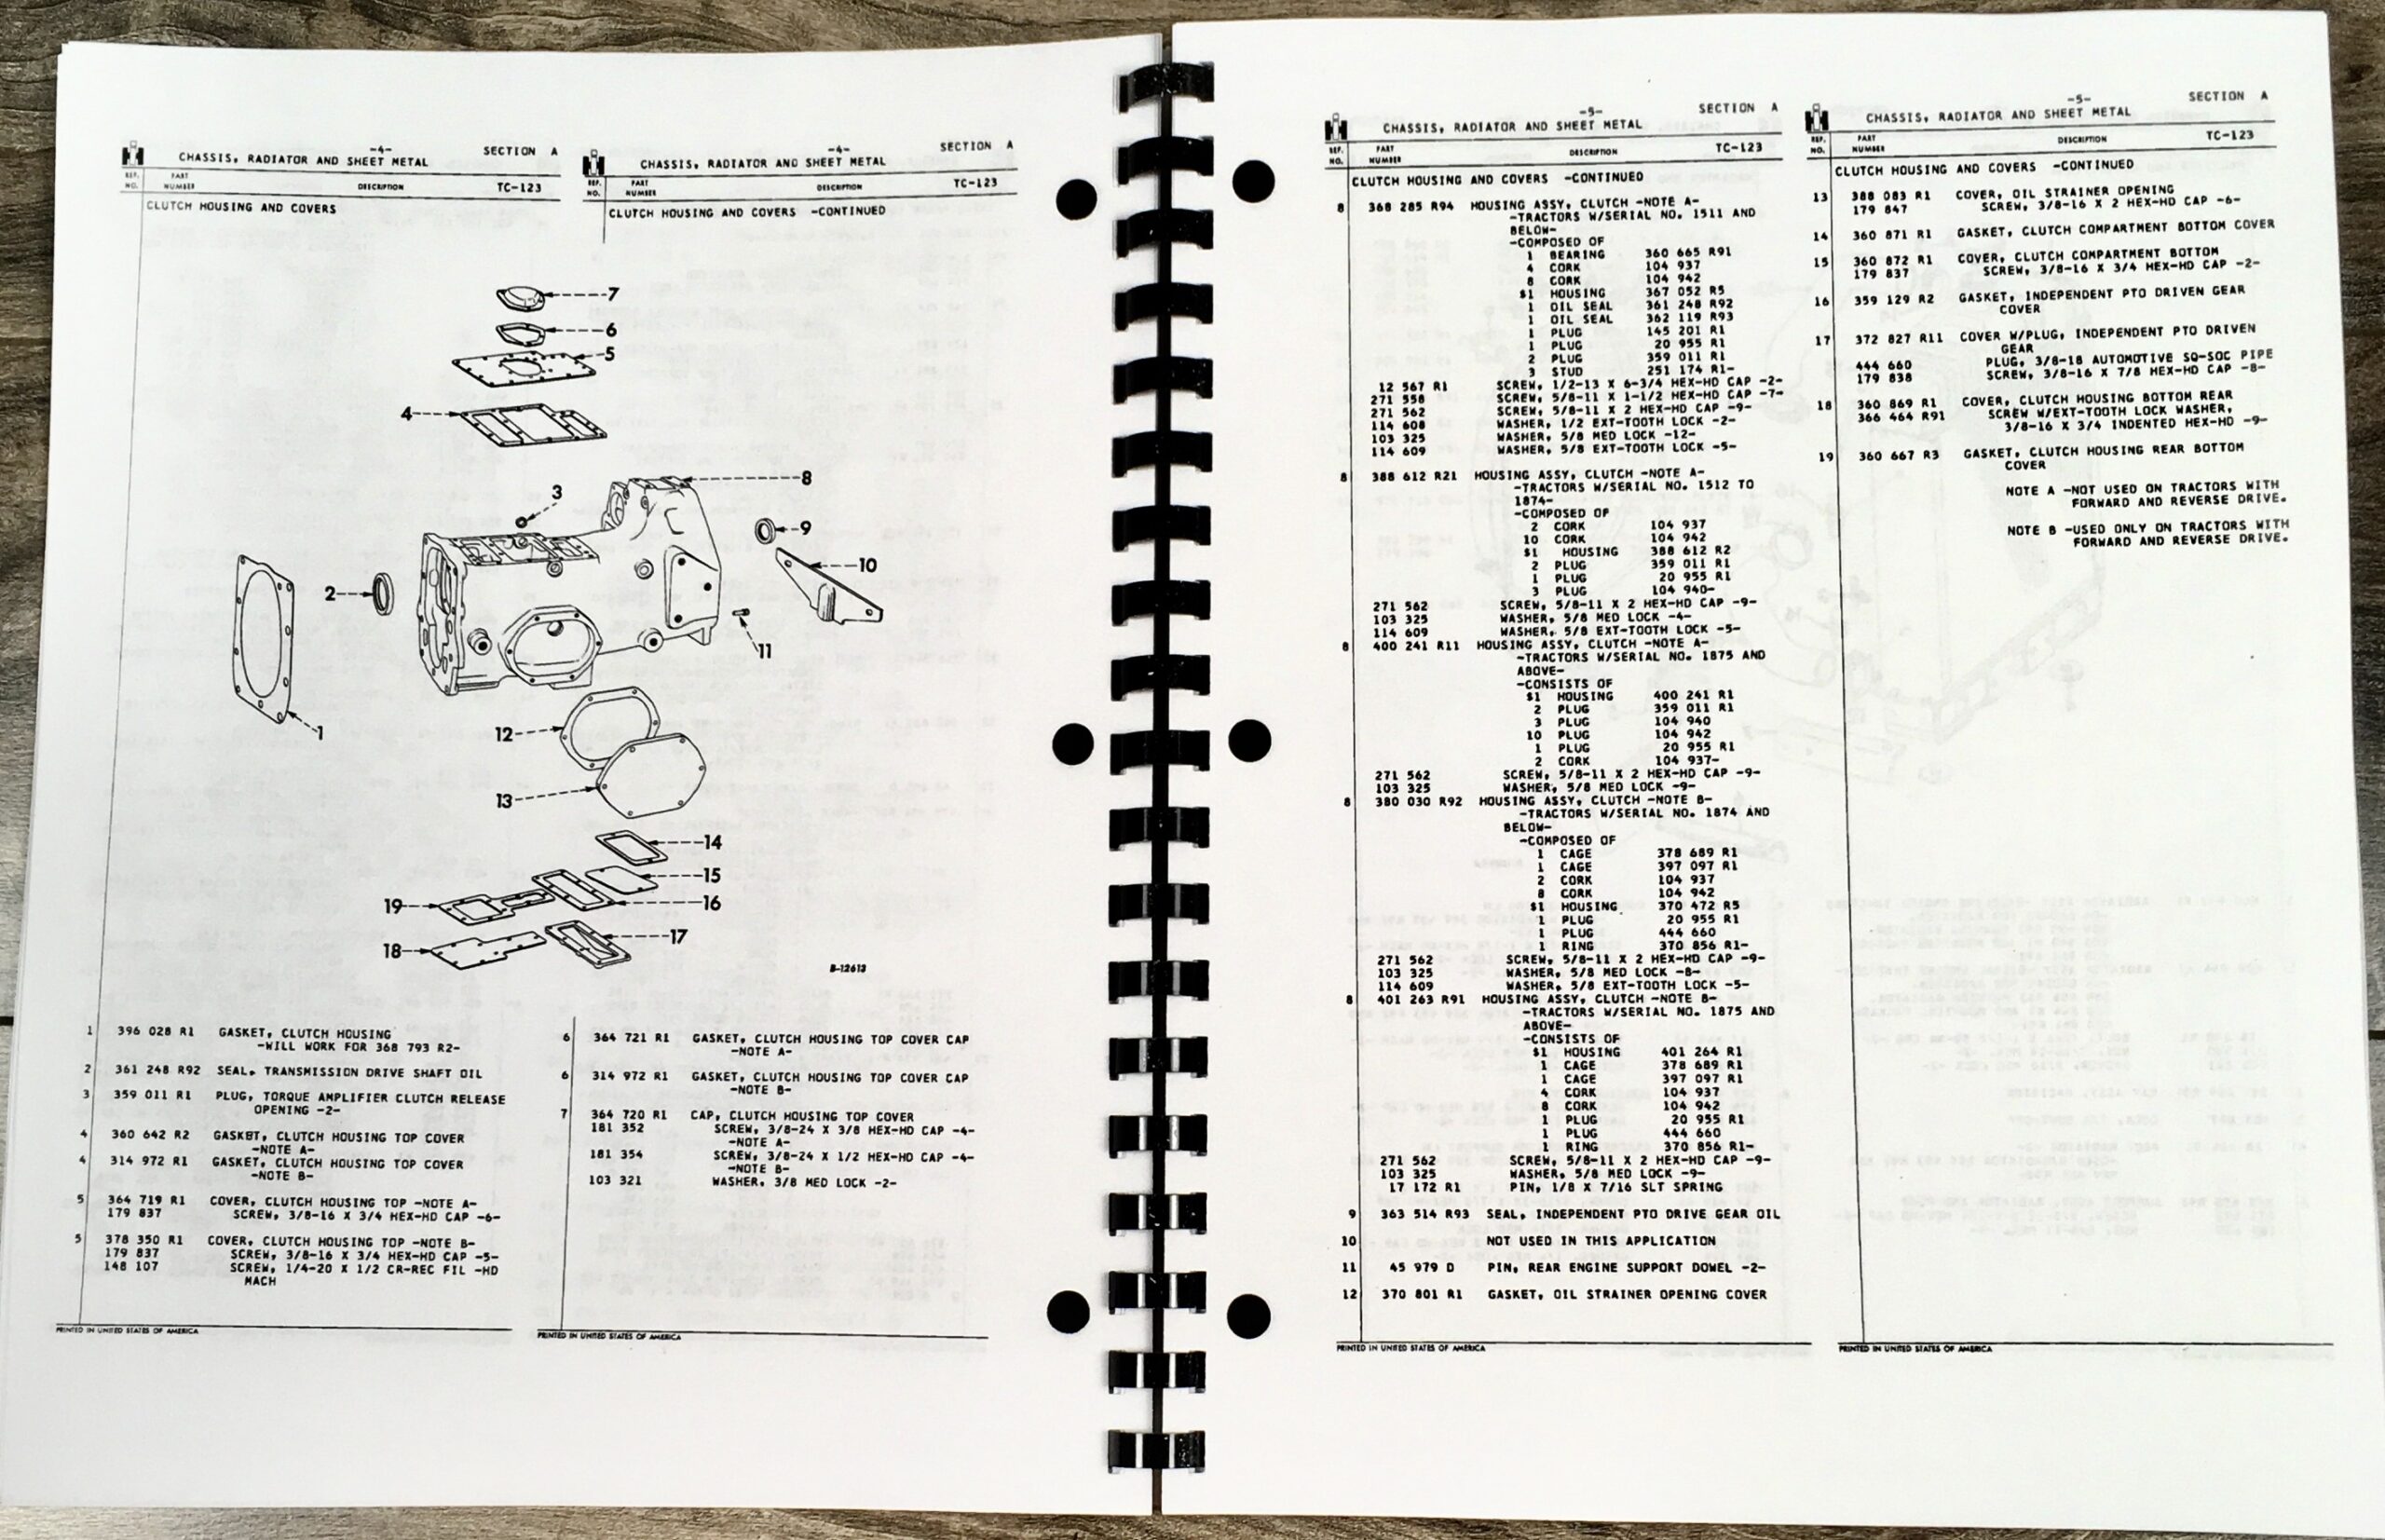 -4-
SECTION A
CHASSIS, RADIATOR AND SHEET METAL
REF. NO.
PART NUMBER
DESCRIPTION
TC-123
CLUTCH HOUSING AND COVERS
-4-
SECTION A
CHASSIS, RADIATOR AND SHEET METAL
REF. NO.
PART NUMBER
DESCRIPTION
TC-123
CLUTCH HOUSING AND COVERS -CONTINUED
7
6
5
4
3
8
9
10
2
11
1
12
13
14
15
16
19
17
18
B-12613
1 396 028 R1 GASKET, CLUTCH HOUSING
-WILL WORK FOR 368 793 R2-
2 361 248 R92 SEAL, TRANSMISSION DRIVE SHAFT OIL
3 359 011 R1 PLUG, TORQUE AMPLIFIER CLUTCH RELEASE
OPENING -2-
4 360 642 R2 GASKET, CLUTCH HOUSING TOP COVER
-NOTE A-
4 314 972 R1 GASKET, CLUTCH HOUSING TOP COVER
-NOTE B-
5 364 719 R1 COVER, CLUTCH HOUSING TOP -NOTE A-
179 837 SCREW, 3/8-16 X 3/4 HEX-HD CAP -6-
5 378 350 R1 COVER, CLUTCH HOUSING TOP -NOTE B-
179 837 SCREW, 3/8-16 X 3/4 HEX-HD CAP -5-
148 107 SCREW, 1/4-20 X 1/2 CR-REC FIL -HD
MACH
PRINTED IN UNITED STATES OF AMERICA
6 364 721 R1 GASKET, CLUTCH HOUSING TOP COVER CAP
-NOTE A-
6 314 972 R1 GASKET, CLUTCH HOUSING TOP COVER CAP
-NOTE B-
7 364 720 R1 CAP, CLUTCH HOUSING TOP COVER
181 352 SCREW, 3/8-24 X 3/8 HEX-HD CAP -4-
-NOTE A-
181 354 SCREW, 3/8-24 X 1/2 HEX-HD CAP -4-
-NOTE B-
103 321 WASHER, 3/8 MED LOCK -2-
PRINTED IN UNITED STATES OF AMERICA
-5-
SECTION A
CHASSIS, RADIATOR AND SHEET METAL
REF. NO.
PART NUMBER
DESCRIPTION
TC-123
CLUTCH HOUSING AND COVERS -CONTINUED
8 368 285 R94 HOUSING ASSY, CLUTCH -NOTE A-
-TRACTORS W/SERIAL NO. 1511 AND
BELOW-
-COMPOSED OF
1 BEARING 360 665 R91
4 CORK 104 937
8 CORK 104 942
$1 HOUSING 367 052 R5
1 OIL SEAL 361 248 R92
1 OIL SEAL 362 119 R93
1 PLUG 145 201 R1
1 PLUG 20 955 R1
2 PLUG 359 011 R1
3 STUD 251 174 R1-
12 567 R1 SCREW, 1/2-13 X 6-3/4 HEX-HD CAP -2-
271 558 SCREW, 5/8-11 X 1-1/2 HEX-HD CAP -7-
271 562 SCREW, 5/8-11 X 2 HEX-HD CAP -9-
114 608 WASHER, 1/2 EXT-TOOTH LOCK -2-
103 325 WASHER, 5/8 MED LOCK -12-
114 609 WASHER, 5/8 EXT-TOOTH LOCK -5-
8 388 612 R21 HOUSING ASSY, CLUTCH -NOTE A-
-TRACTORS W/SERIAL NO. 1512 TO
1874-
-COMPOSED OF
2 CORK 104 937
10 CORK 104 942
$1 HOUSING 388 612 R2
2 PLUG 359 011 R1
1 PLUG 20 955 R1
3 PLUG 104 940-
271 562 SCREW, 5/8-11 X 2 HEX-HD CAP -9-
103 325 WASHER, 5/8 MED LOCK -4-
114 609 WASHER, 5/8 EXT-TOOTH LOCK -5-
8 400 241 R11 HOUSING ASSY, CLUTCH -NOTE A-
-TRACTORS W/SERIAL NO. 1875 AND
ABOVE-
-CONSISTS OF
$1 HOUSING 400 241 R1
2 PLUG 359 011 R1
3 PLUG 104 940
10 PLUG 104 942
1 PLUG 20 955 R1
2 CORK 104 937-
271 562 SCREW, 5/8-11 X 2 HEX-HD CAP -9-
103 325 WASHER, 5/8 MED LOCK -9-
8 380 030 R92 HOUSING ASSY, CLUTCH -NOTE B-
-TRACTORS W/SERIAL NO. 1874 AND
BELOW-
-COMPOSED OF
1 CAGE 378 689 R1
1 CAGE 397 097 R1
2 CORK 104 937
8 CORK 104 942
$1 HOUSING 370 472 R5
1 PLUG 20 955 R1
1 PLUG 444 660
1 RING 370 856 R1-
271 562 SCREW, 5/8-11 X 2 HEX-HD CAP -9-
103 325 WASHER, 5/8 MED LOCK -8-
114 609 WASHER, 5/8 EXT-TOOTH LOCK -5-
8 401 263 R91 HOUSING ASSY, CLUTCH -NOTE B-
-TRACTORS W/SERIAL NO. 1875 AND
ABOVE-
-CONSISTS OF
$1 HOUSING 401 264 R1
1 CAGE 378 689 R1
1 CAGE 397 097 R1
4 CORK 104 937
8 CORK 104 942
1 PLUG 20 955 R1
1 PLUG 444 660
1 RING 370 856 R1-
271 562 SCREW, 5/8-11 X 2 HEX-HD CAP -9-
103 325 WASHER, 5/8 MED LOCK -9-
17 172 R1 PIN, 1/8 X 7/16 SLT SPRING
9 363 514 R93 SEAL, INDEPENDENT PTO DRIVE GEAR OIL
10 NOT USED IN THIS APPLICATION
11 45 979 D PIN, REAR ENGINE SUPPORT DOWEL -2-
12 370 801 R1 GASKET, OIL STRAINER OPENING COVER
PRINTED IN UNITED STATES OF AMERICA
-5-
SECTION A
CHASSIS, RADIATOR AND SHEET METAL
REF. NO.
PART NUMBER
DESCRIPTION
TC-123
CLUTCH HOUSING AND COVERS -CONTINUED
13 388 083 R1 COVER, OIL STRAINER OPENING
179 847 SCREW, 3/8-16 X 2 HEX-HD CAP -6-
14 360 871 R1 GASKET, CLUTCH COMPARTMENT BOTTOM COVER
15 360 872 R1 COVER, CLUTCH COMPARTMENT BOTTOM
179 837 SCREW, 3/8-16 X 3/4 HEX-HD CAP -2-
16 359 129 R2 GASKET, INDEPENDENT PTO DRIVEN GEAR
COVER
17 372 827 R11 COVER W/PLUG, INDEPENDENT PTO DRIVEN
GEAR
444 660 PLUG, 3/8-18 AUTOMOTIVE SQ-SOC PIPE
179 838 SCREW, 3/8-16 X 7/8 HEX-HD CAP -8-
18 360 869 R1 COVER, CLUTCH HOUSING BOTTOM REAR
366 464 R91 SCREW W/EXT-TOOTH LOCK WASHER,
3/8-16 X 3/4 INDENTED HEX-HD -9-
19 360 667 R3 GASKET, CLUTCH HOUSING REAR BOTTOM
COVER
NOTE A -NOT USED ON TRACTORS WITH
FORWARD AND REVERSE DRIVE.
NOTE B -USED ONLY ON TRACTORS WITH
FORWARD AND REVERSE DRIVE.
PRINTED IN UNITED STATES OF AMERICA